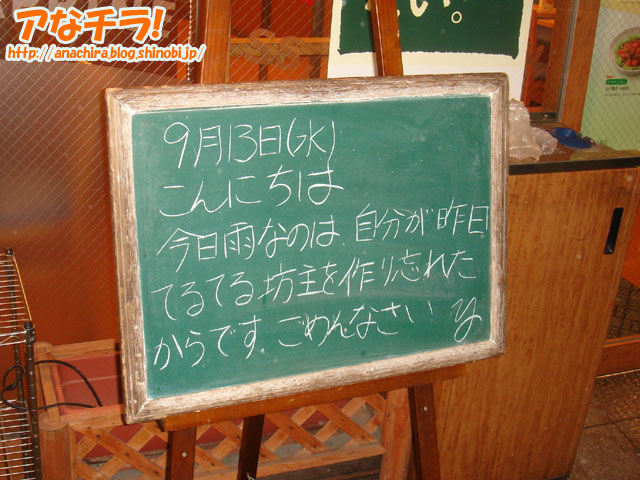 アなチラ!
http://anachira.blog.shinobi.jp/
い。
9月13日(水)
こんにちは
今日雨なのは、自分が昨日
てるてる坊主を作り忘れた
からです。ごめんなさい